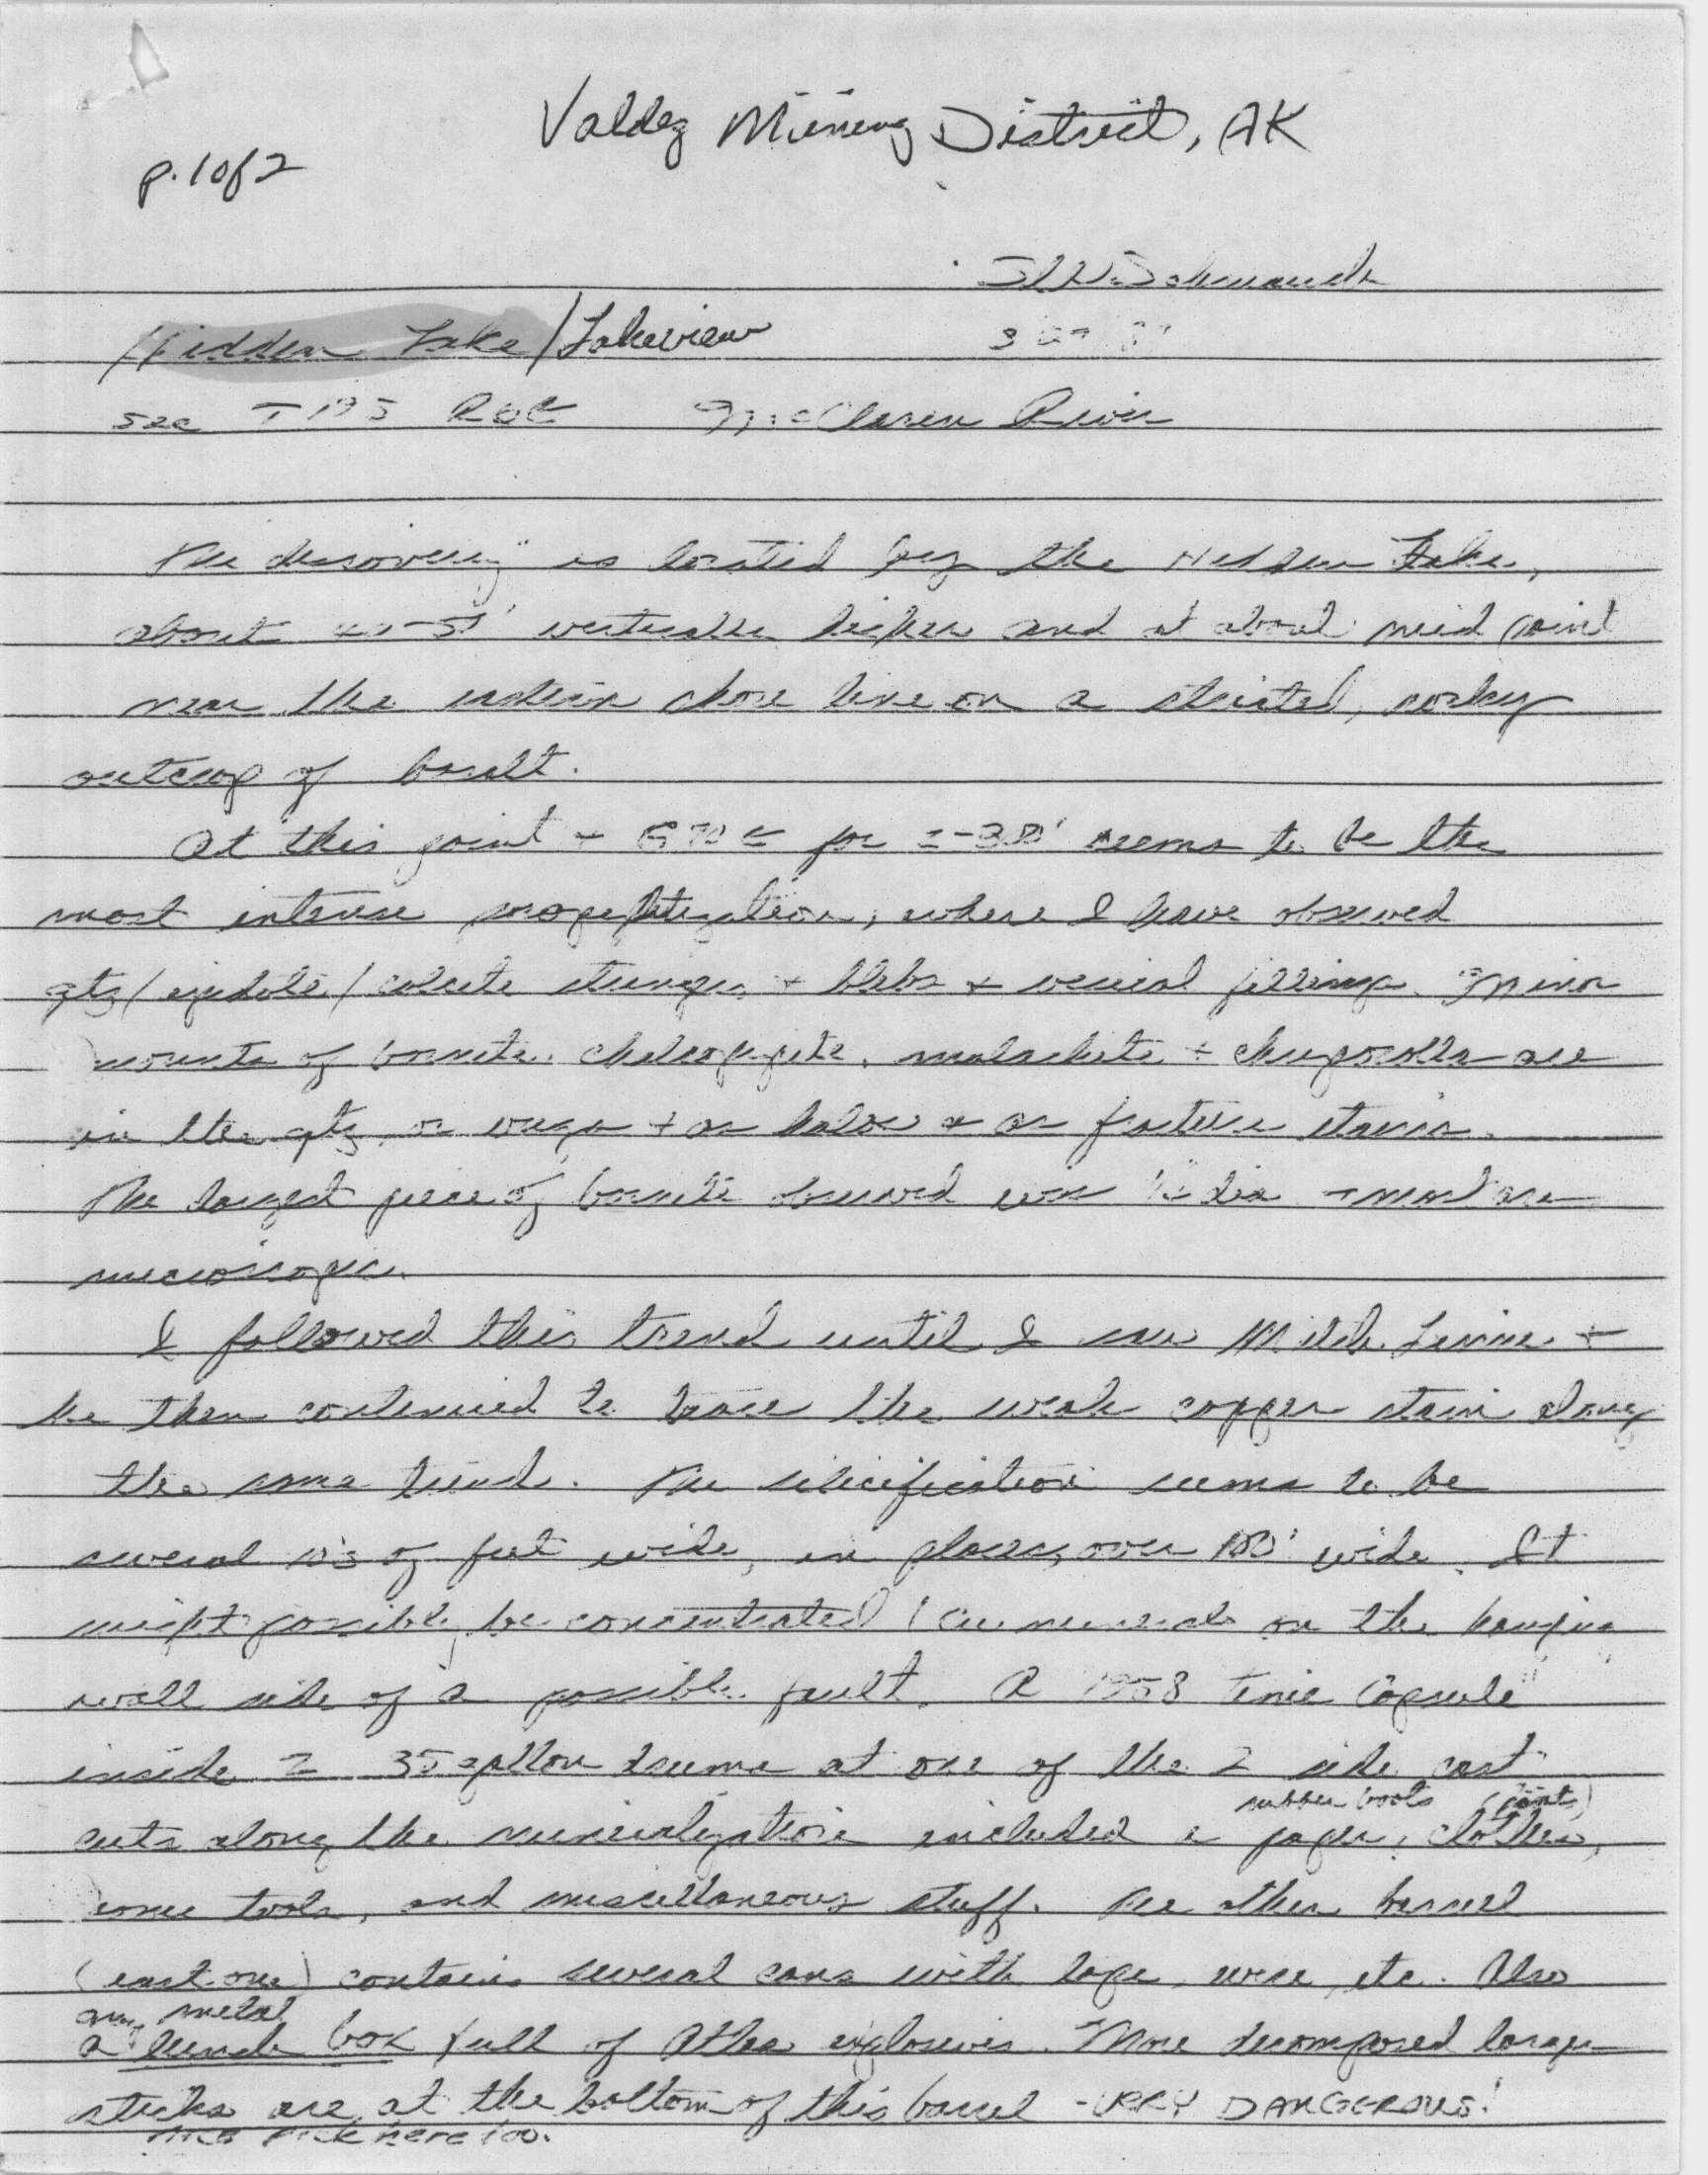 Valdez Mining District, AK
p. 1 of 2
Hidden Lake / Lakeview
sec T19S R6E McClaren River
The discovery" is located by the Hidden Lake,
about vertically higher and at about mid point
near the eastern shore line on a striated, rocky
outcrop of basalt.
At this point + for seems to be the
most intense propylitization, where I have observed
qtz/epidote/calcite stringers + blebs + vesicial fillings. Minor
amounts of bornite, chalcopyrite, malachite + chrysocolla are
in the qtz, or vugs + as halos + as fracture stains.
The largest piece of bornite observed was dia + most are
microscopic.
I followed this trend until I saw Mitch Levine +
he then continued to trace the weak copper stain along
the same trend. The silicification seems to be
several 10's of feet wide, in places, over 100' wide. It
might possibly be concentrated (Cu minerals on the hanging
wall side of a possible fault. A 1958 time capsule"
inside 2 35 gallon drums at one of the 2 side cast
rubber boots (pants)
cuts along the mineralization included a paper, clothes,
some tools, and miscellaneous stuff. The other barrel
(east one) contains several cans with tape, wire, etc. Also
metal
a lunch box full of Atlas explosives. More decomposed larger
sticks are at the bottom of this barrel - VERY DANGEROUS!
pick here too.